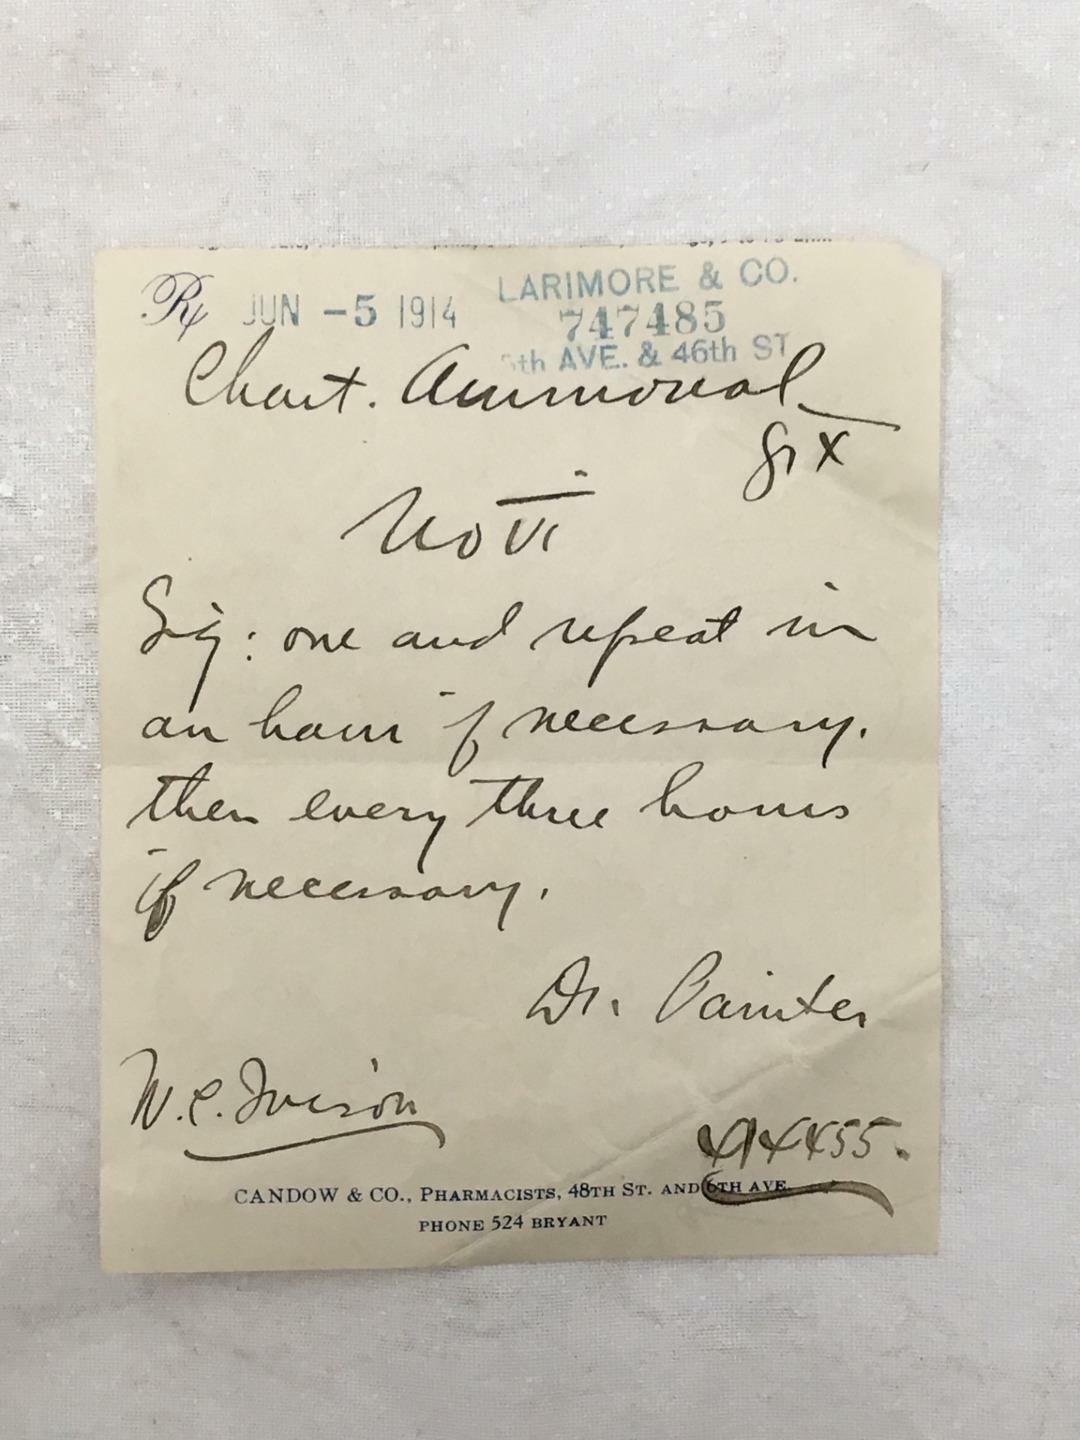 ℞ JUN -5 1914 LARIMORE & CO.
747485
th AVE. & 46th ST
Chart. Ammonal
gr x
No VI
Sig: one and repeat in
an hour if necessary.
then every three hours
if necessary.
Dr. Painter
W.C. Ivison
CANDOW & CO., PHARMACISTS, 48TH ST. AND 6TH AVE.
PHONE 524 BRYANT